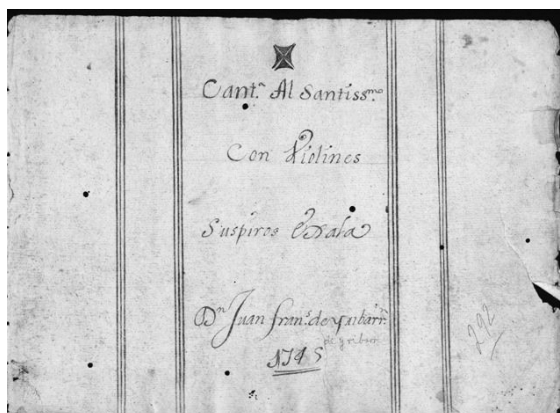 Cant.ª Al Santiss.mo
Con Violines
Suspiros Exala
Dn Juan Fran.co de
1745
292